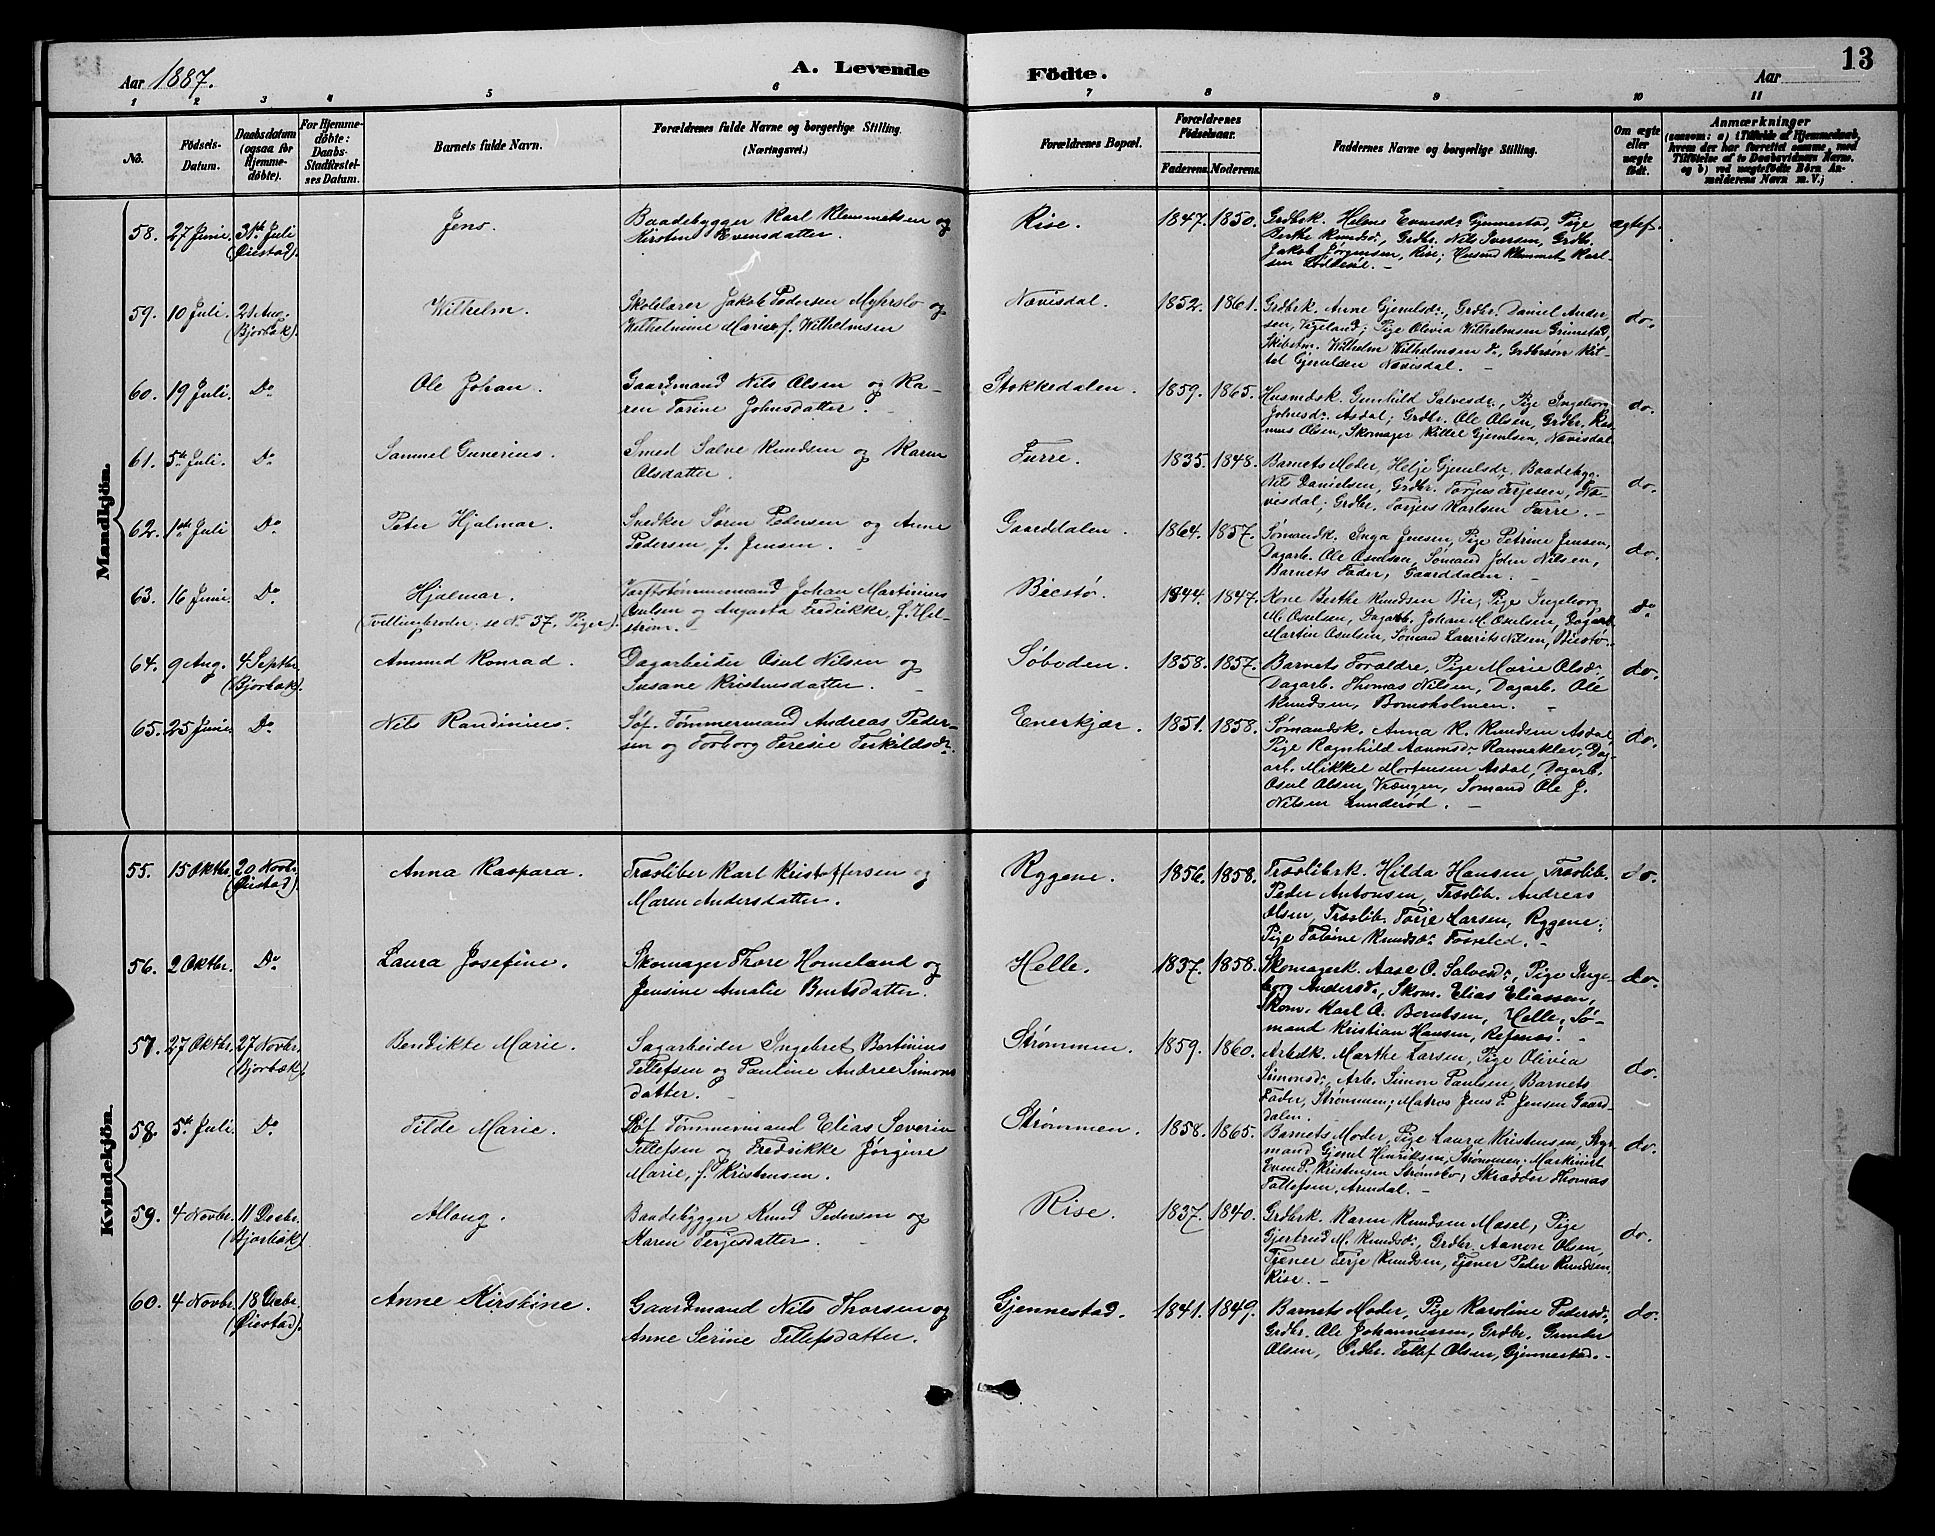 Aar 1887.
A. Levende Födte.
Aar
13
1 2 3 4 5 6 7 8 9 10 11
No.
Födsels-Datum.
Daabsdatum (ogsaa for Hjemmedöbte).
For Hjemmedöbte: Daabs-Stadfæstelses Datum.
Barnets fulde Navn.
Forældrenes fulde Navne og borgerlige Stilling. (Næringsvei.)
Forældrenes Bopæl.
Forældrenes Födselsaar.
Faderens. Moderens.
Faddernes Navne og borgerlige Stilling.
Om ægte eller uægte födt.
Anmærkninger
(saasom: a) i Tilfælde af Hjemmedaab, hvem der har forrettet samme, med Tilföielse af to Daabsvidners Navne, og b) ved uægtefödte Börn Anmelderens Navn m. V.;
Mandkjön.
58. 27 Juni. 31te Juli (Øiestad). Jens. Baadebygger Karl Klemmetsen og Kirstine Evensdatter. Rise. 1847. 1850. Grdbrk. Helene Evensdr Gjennestad, Pige Berthe Knudsdr, Grdbr. Nils Iversen, Grdbr. Jakob Jørgensen, Rise; Husmd Klemmet Karlsen ægtef.
59. 10 Juli. 21 Aug. (Bjorbæk). Wilhelm. Skolelærer Jakob Pedersen Myhrslo og Wilhelmine Marie f. Wilhelmsen Nævisdal. 1852. 1861. Grdbrk. Anne Gjerulsdr, Grdbr. Daniel Andersen, Vegeland; Pige Olivia Wilhelmsen Grimstad, Skibstm. Wilhelm Wilhelmsen do, Grdbrsøn Kittel Gjerulsen Nævisdal. do.
60. 19 Juli. Do Ole Johan. Gaardmand Nils Olsen og Karen Torine Johnsdatter. Stokkedalen. 1859. 1865. Husmdsk. Gunhild Salvesdr, Pige Ingeborg Johnsdr Asdal; Grdbr. Ole Olsen, Grdbr. Rasmus Olsen, Skomager Kittel Gjerulsen, Nævisdal do.
61. 5te Juli. Do Samuel Gunerius. Smed Salve Knudsen og Karen Olsdatter. Furre. 1835. 1848. Barnets Moder, Helje Gjerulsdr, Baadebyg. Nils Danielsen, Grdbr. Torjus Terjesen, Nævisdal; Grdbr. Torjus Karlsen Furre. do.
62. 1ste Juli Do Peter Hjalmar. Snedker Søren Pedersen og Anne Pedersen f. Jensen. Gaarddalen. 1864. 1857. Sømandk. Inga Jensen, Pige Petrine Jensen, Dagarb. Ole Osulsen, Sømand John Nilsen, Barnets Fader, Gaarddalen. do.
63. 16 Juni. Do Hjalmar. (Tvillingbroder, se No 57, Piger). Værftstømmermand Johan Martinius Osulsen og Augusta Fredrikke, f. Helstrøm. Biestø. 1844. 1847. Kone Berthe Knudsen Bie, Pige Ingeborg M. Osulsen, Dagarb. Johan M. Osulsen, Dagarb. Martin Osulsen, Sømand Laurits Nilsen, Biestø. do
64. 9 Aug. 4 Septbr. (Bjorbæk). Amund Konrad. Dagarbeider Osul Nilsen og Susane Kristensdatter. Søboden. 1858. 1857. Barnets Forældre, Pige Marie Olsdr, Dagarb. Thomas Nilsen, Dagarb. Ole Knudsen, Bomsholmen. do.
65. 25 Juni. Do Nils Randinius. Søf. Tømmermand Andreas Pedersen og Torborg Teresie Terkildsdr. Enerkjær. 1851. 1858. Sømandsk. Anna K. Knudsen Asdal, Pige Ragnhild Aanonsdr Ranneklev, Dagarb. Mikkel Mortensen Asdal, Dagarb. Osul Olsen, Vrængen, Sømand Ole J. Nilsen Lunderød. do.
Kvindekjön.
55. 15 Oktbr. 20 Novbr. (Øiestad). Anna Kaspara. Træsliber Karl Kristoffersen og Maren Andersdatter. Rygene. 1856. 1858. Træsliberk. Hilda Hansen, Træslib. Peder Antonsen, Træslib. Andreas Olsen, Træslib. Terje Larsen, Rygene; Pige Tobine Knudsdr do.
56. 2 Oktbr. Do Laura Josefine. Skomager Thore Homeland og Jensine Amalie Berntsdatter. Helle. 1837. 1858. Skomagerk. Aase O. Salvesdr, Pige Ingeborg Andersdr, Skom. Elias Eliassen, Skom. Karl A. Berntsen, Helle; Sømand Kristian Hansen, Refnæs. do.
57. 27 Oktbr. 27 Novbr. (Bjorbæk). Bendikte Marie. Sagarbeider Ingebret Bertinius Tellefsen og Pauline Andrea Simonsdatter. Strømmen. 1859. 1860. Arbdk. Marthe Larsen, Pige Olivia Simonsdr, Arb. Simon Paulsen, Barnets Fader, Strømmen; Matros Jens P. Jensen Gaarddalen. do.
58. 5te Juli. Do Tilde Marie. Søf Tømmermand Elias Severin Tellefsen og Fredrikke Jørgine Marie, f. Kristensen. Strømmen. 1858. 1865. Barnets Moder, Pige Laura Kristensen, Styrmand Gjerul Henriksen, Strømmen; Maskinist Even P. Kristensen Strømsbo; Skrædder Thomas Tellefsen, Arendal. do.
59. 4 Novbr. 11 Decbr. (Bjorbæk). Allaug. Baadebygger Knud Pedersen og Karen Terjesdatter. Rise. 1837. 1840. Grdbrk. Karen Knudsen Mosel, Pige Gjertrud M. Knudsdr, Grdbr. Aanon Olsen, Tjener Terje Knudsen, Tjener Peder Knudsen, Rise. do.
60. 4 Novbr. 18 Decbr. (Øiestad). Anne Kirstine. Gaardmand Nils Thorsen og Anne Serine Tellefsdatter. Gjennestad. 1841. 1849. Barnets Moder, Pige Karoline Pedersdr, Grdbr. Ole Johannessen, Grdbr. Gunder Olsen, Grdbr. Tellef Olsen, Gjennestad. do.